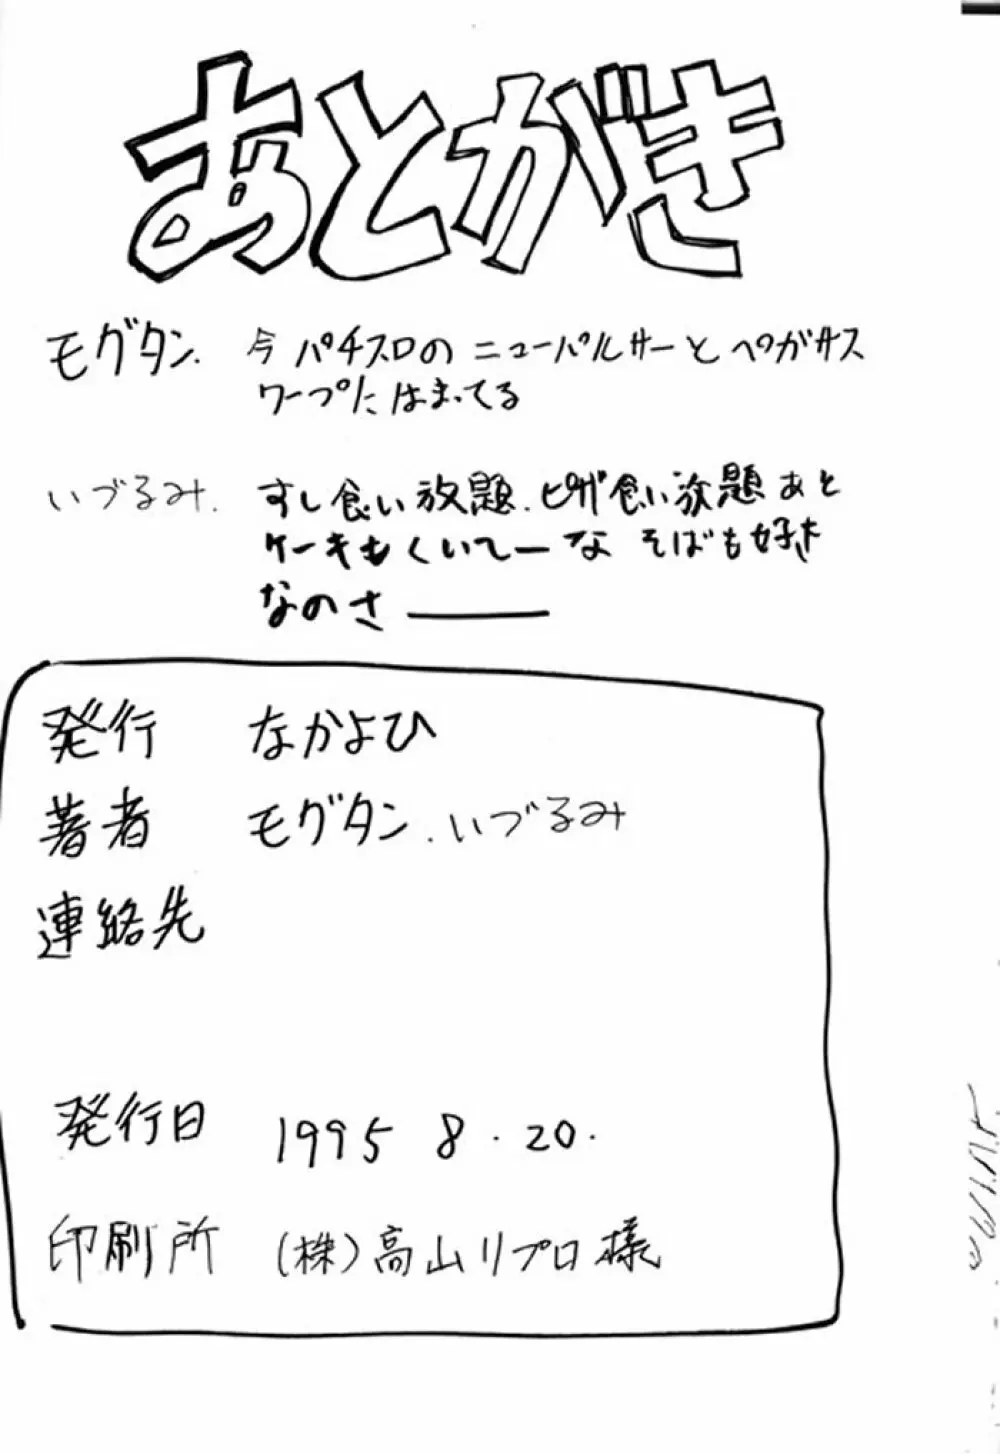 あとがき
モグタン. 今パチスロのニューパルサーとペガサス
ワープにはまってる
いづるみ. すし食い放題.ピザ食い放題あと
ケーキもくいてーな そばも好き
なのさ――
発行 なかよひ
著者 モグタン.いづるみ
連絡先
発行日 1995 8.20.
印刷所 (株)高山リプロ様